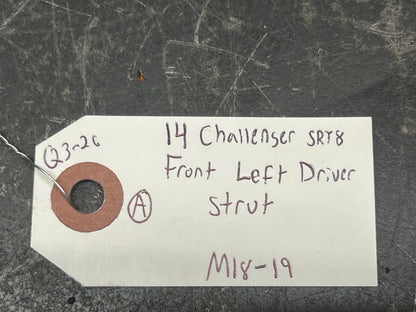 Q3-20
14 Challenger SRT8
Front Left Driver
Strut
A
M18-19